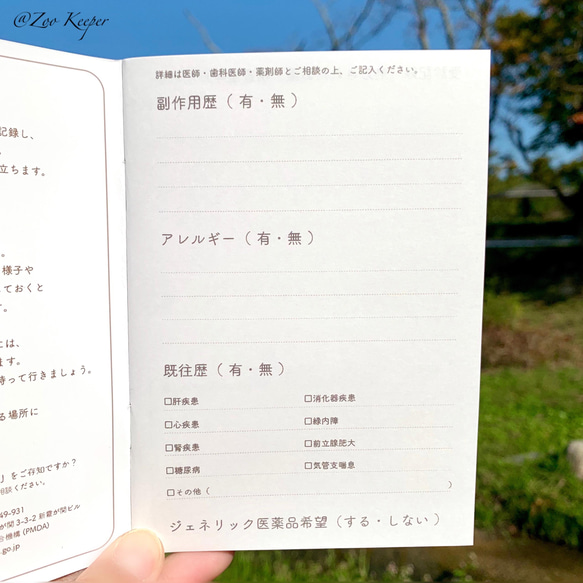 @Zoo Keeper
記録し、
立ちます。
。
様子や
ておくと
す。
には、
ます。
持って行きましょう。
る場所に
」をご存知ですか？
相談ください。
49-931
が関 3-3-2 新霞が関ビル
合機構 (PMDA)
.go.jp
詳細は医師・歯科医師・薬剤師とご相談の上、ご記入ください。
副作用歴（ 有・無 ）
アレルギー（ 有・無 ）
既往歴（ 有・無 ）
□肝疾患 □消化器疾患
□心疾患 □緑内障
□腎疾患 □前立腺肥大
□糖尿病 □気管支喘息
□その他（ ）
ジェネリック医薬品希望（ する・しない ）